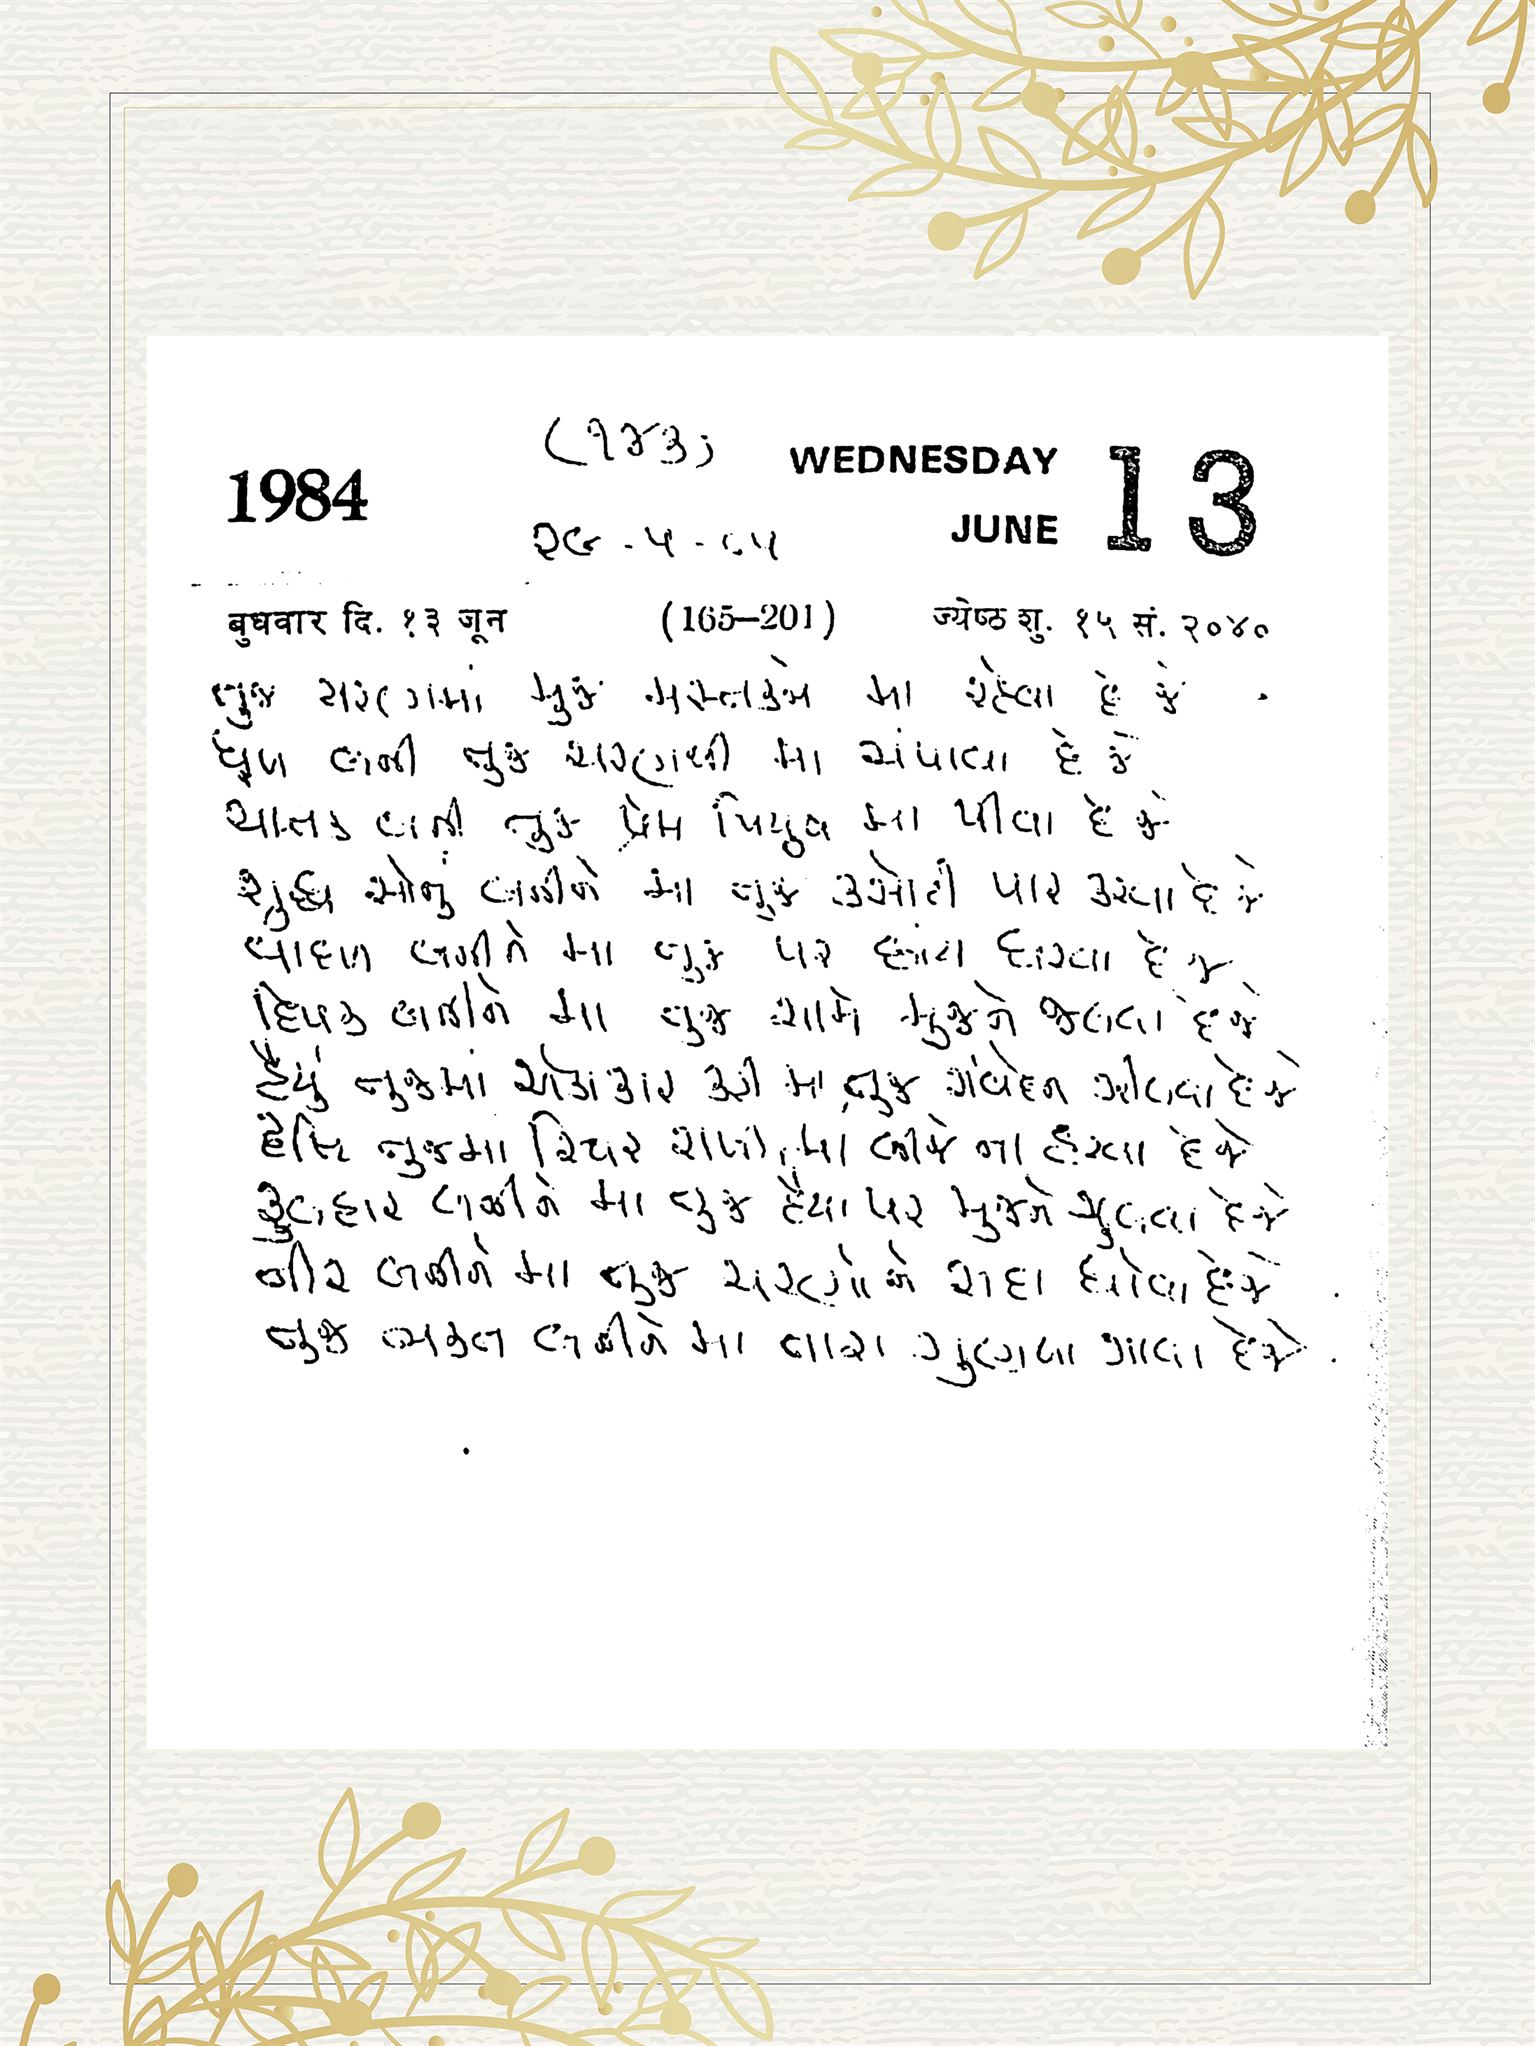 (૧૪૩)
1984 WEDNESDAY 13
૨૯ - ૫ - ૮૫ JUNE
बुधवार दि. १३ जून (165–201) ज्येष्ठ शु. १५ सं. २०४०
તુજ ચરણમાં મુજ મસ્તકને મા રહેવા દેજે
ધૂળ બની તુજ ચરણથી મા ચંપાવા દેજે
ચાતક બની તુજ પ્રેમ પિયુષ મા પીવા દેજે
શુદ્ધ સોનું બનીને મા તુજ કસોટી પાર કરવા દેજે
વાદળ બનીને મા તુજ પર છાંય ધરવા દેજે
દિપક બનીને મા તુજ સામે મુજને જલવા દેજે
હૈયું તુજમાં એકાકાર કરી મા તુજ સંવેદન ઝીલવા દેજે
દૃષ્ટિ તુજમાં સ્થિર રાખી, મા બીજે ના ફેરવા દેજે
ફુલહાર બનીને મા તુજ હૈયા પર મુજને ઝુલવા દેજે
નીર બનીને મા તુજ ચરણોને સદા ધોવા દેજે
તુજ ભક્ત બનીને મા તારા ગુણલા ગાવા દેજે